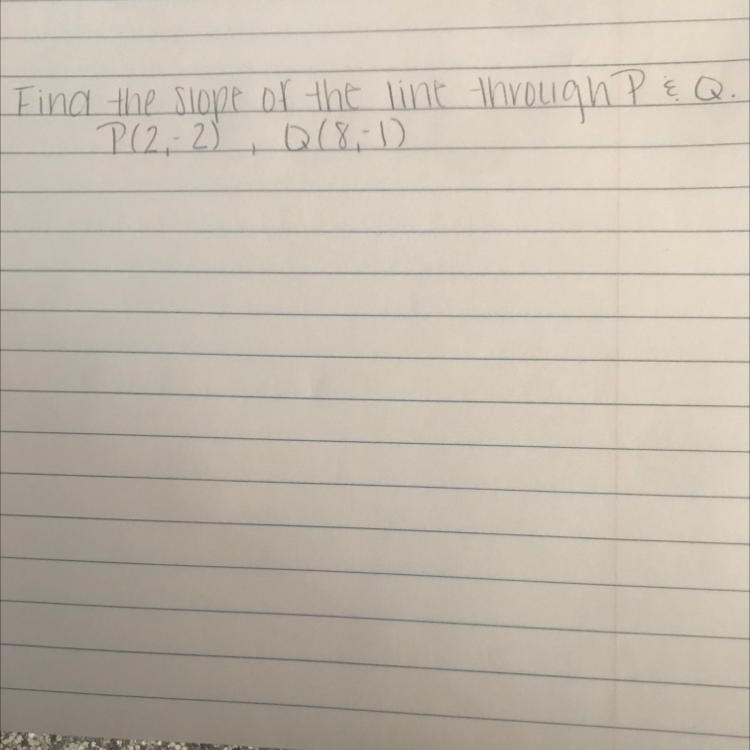 Find the slope of the line through P & Q.
P(2,-2) , Q(8,-1)